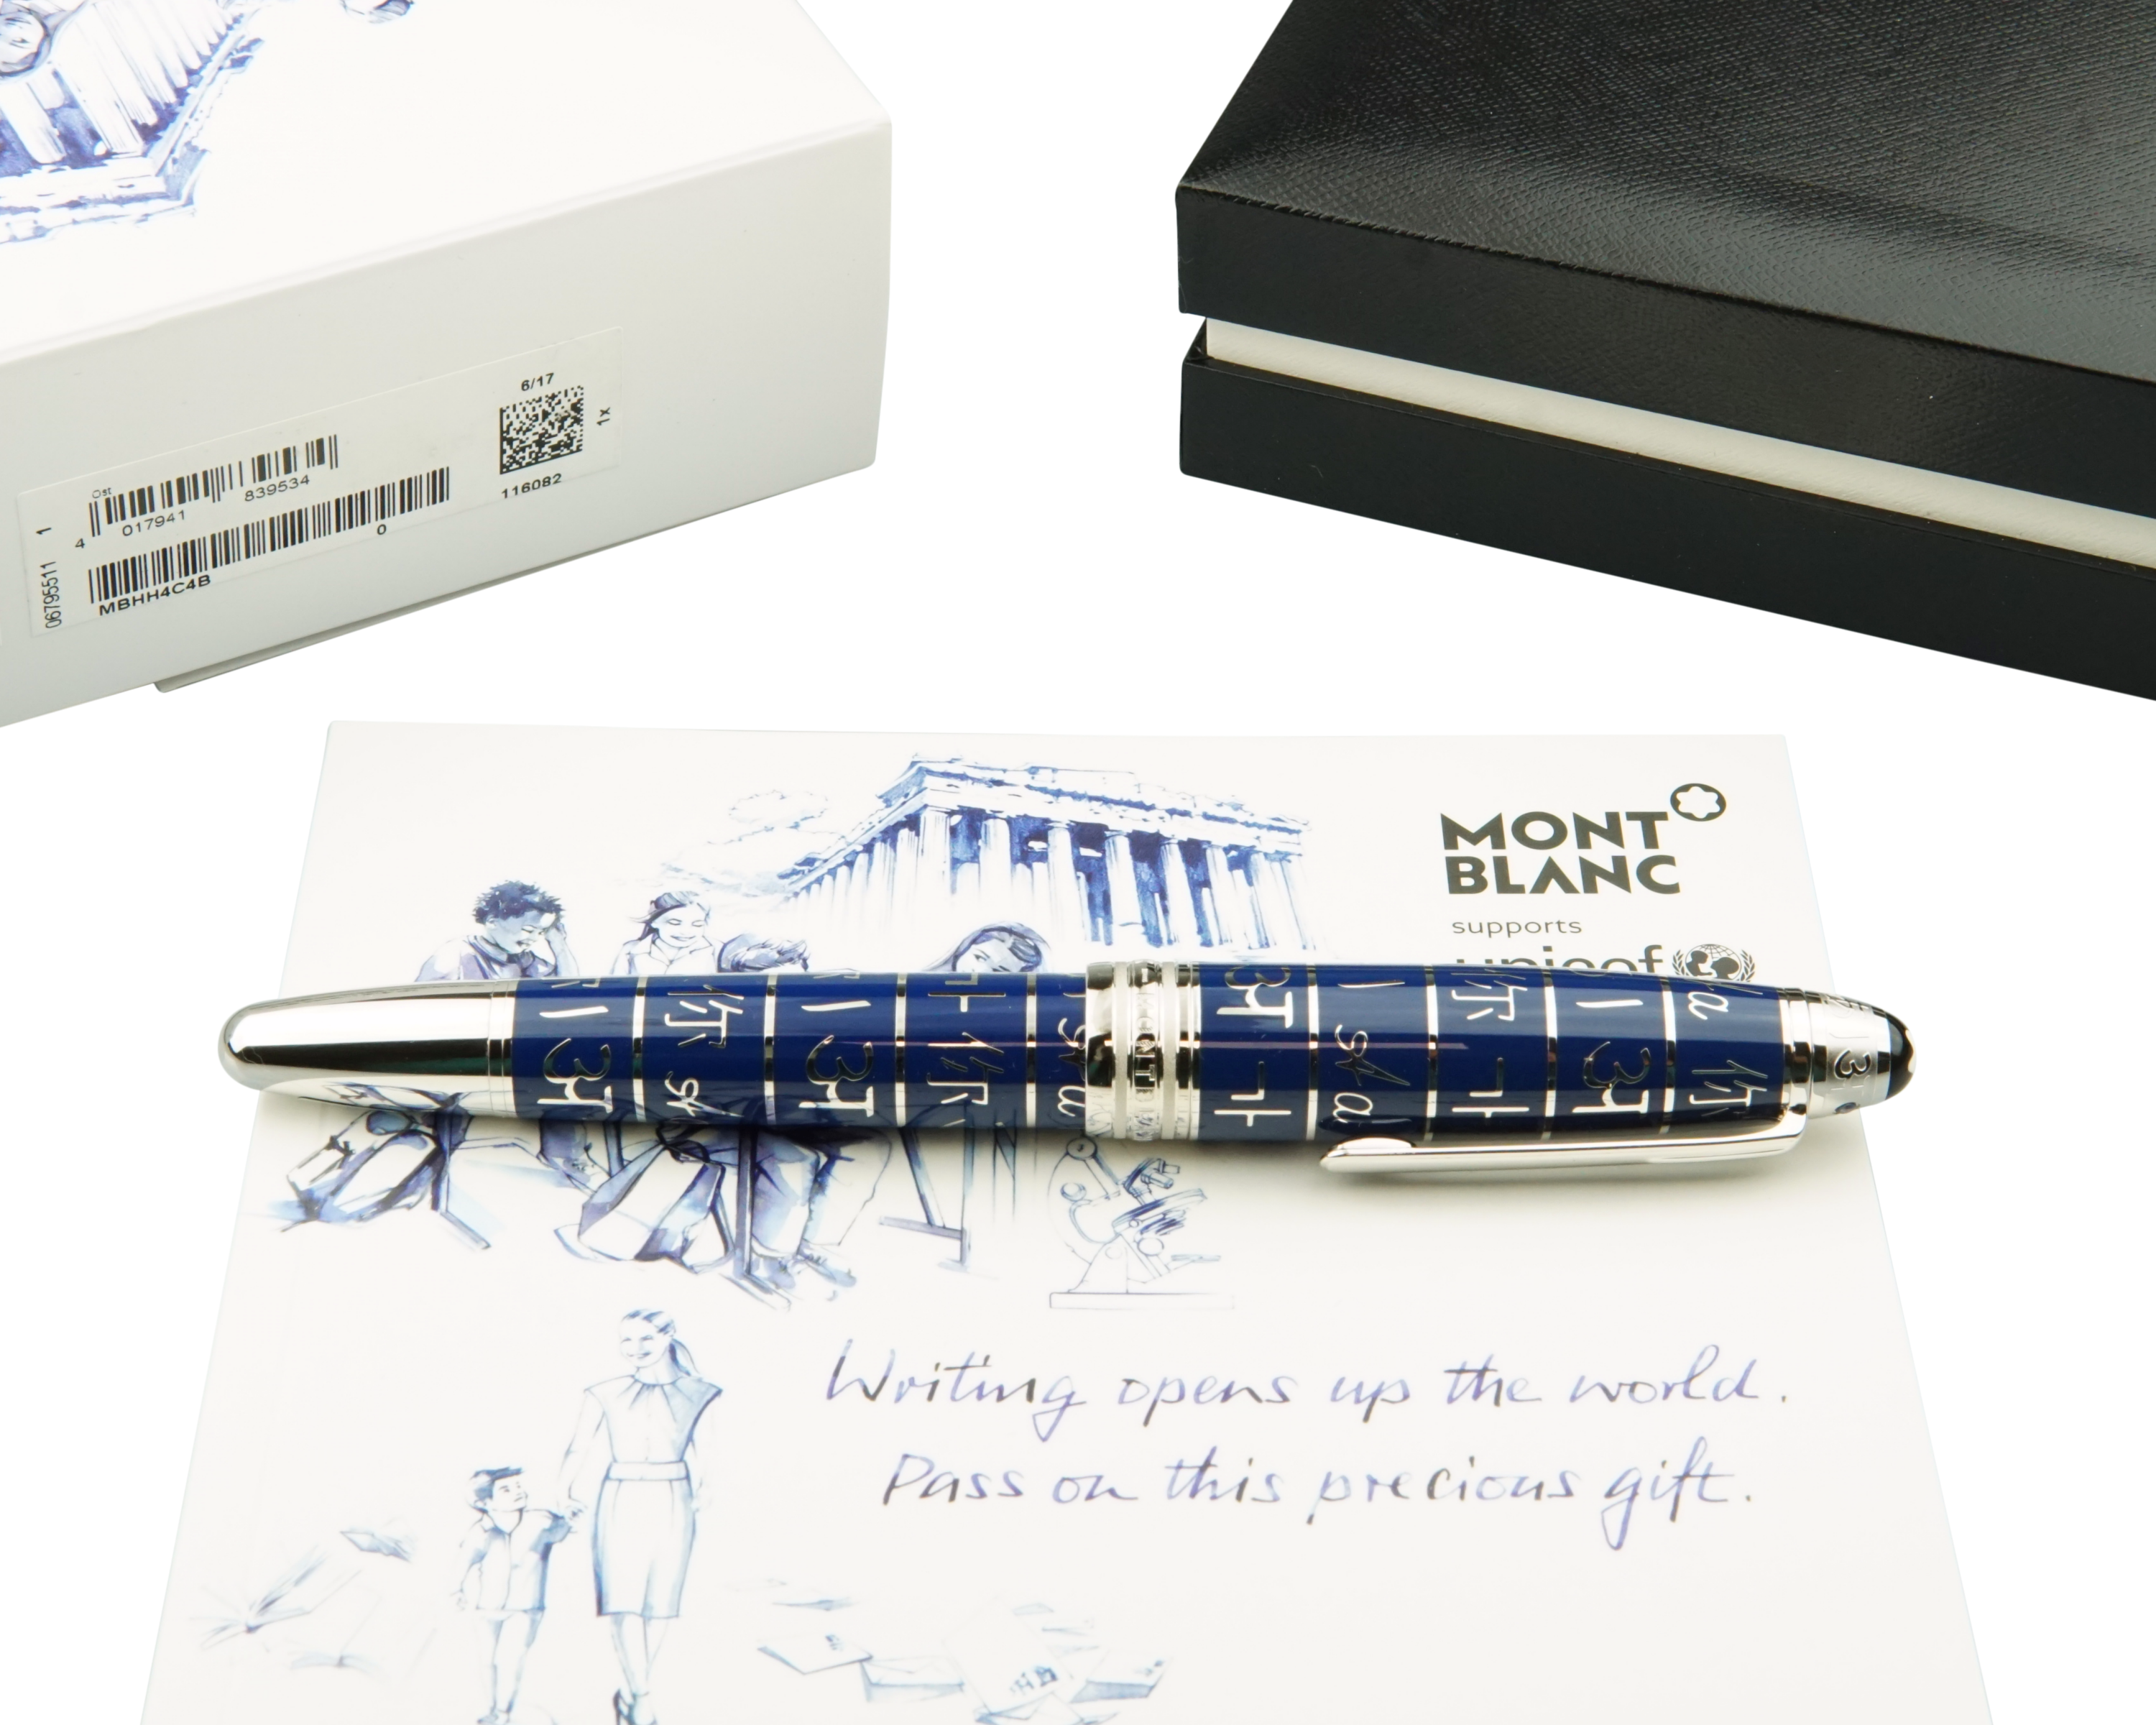 6/17
1x
116082
Ost
4 017941 839534
0
MBHH4C4B
06795511 1
MONT
BLANC
supports
unicef
你 अ 你 अ 你
가 a 가 a
Writing opens up the world.
Pass on this precious gift.